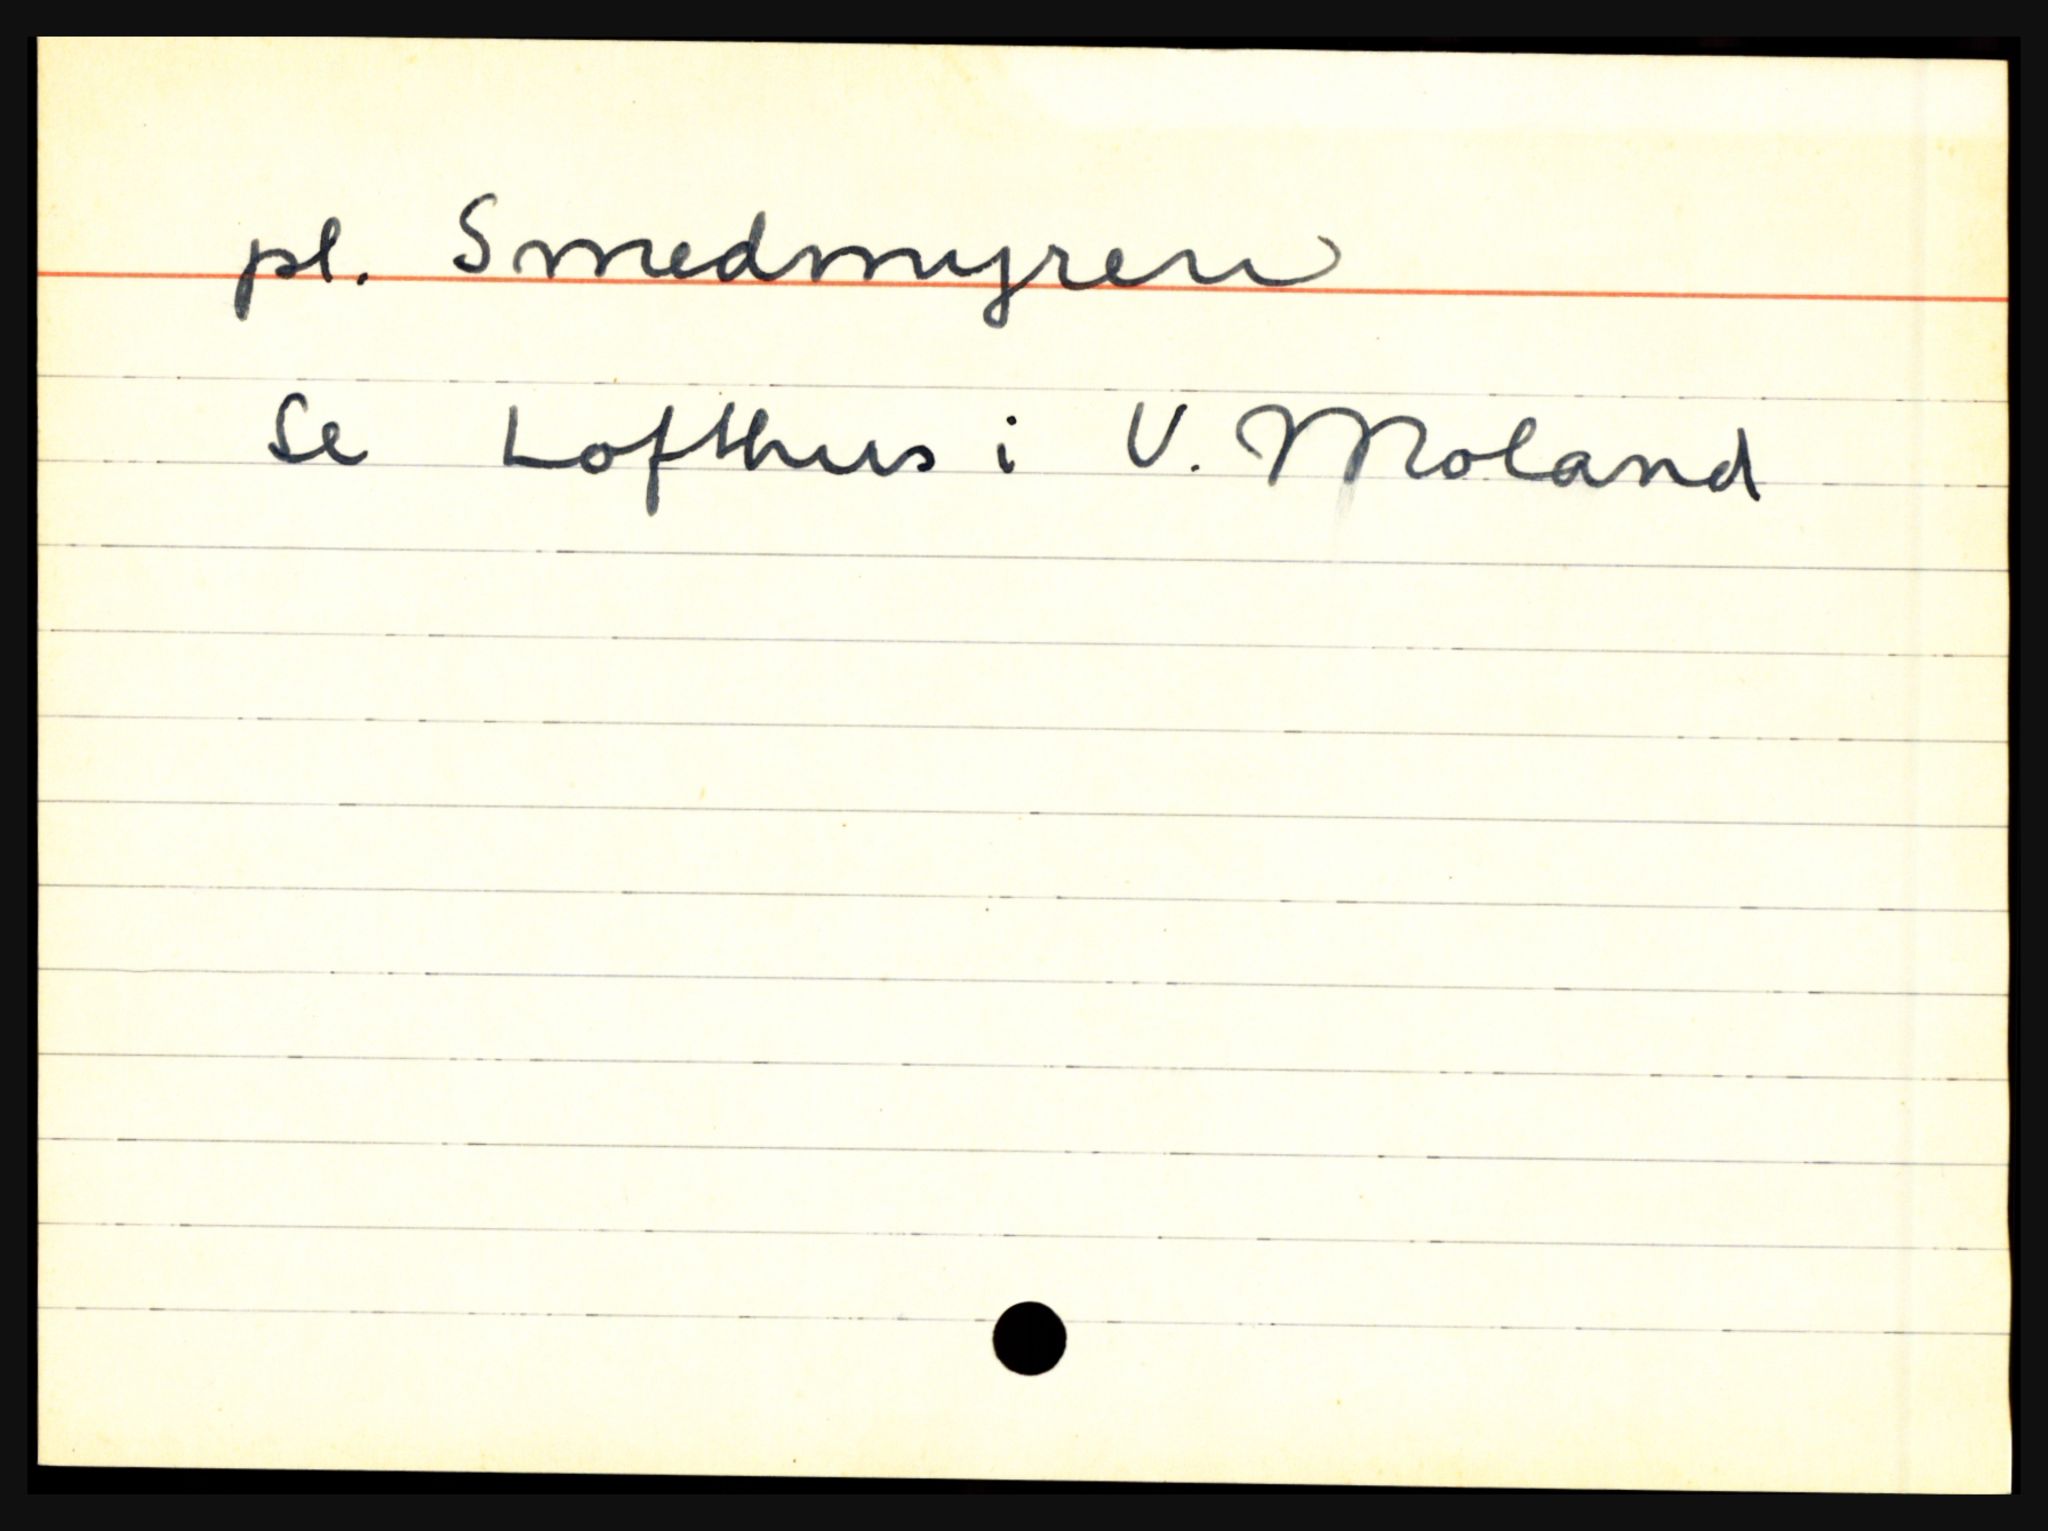 pl. Smedmyren
Se Lofthus i V. Moland